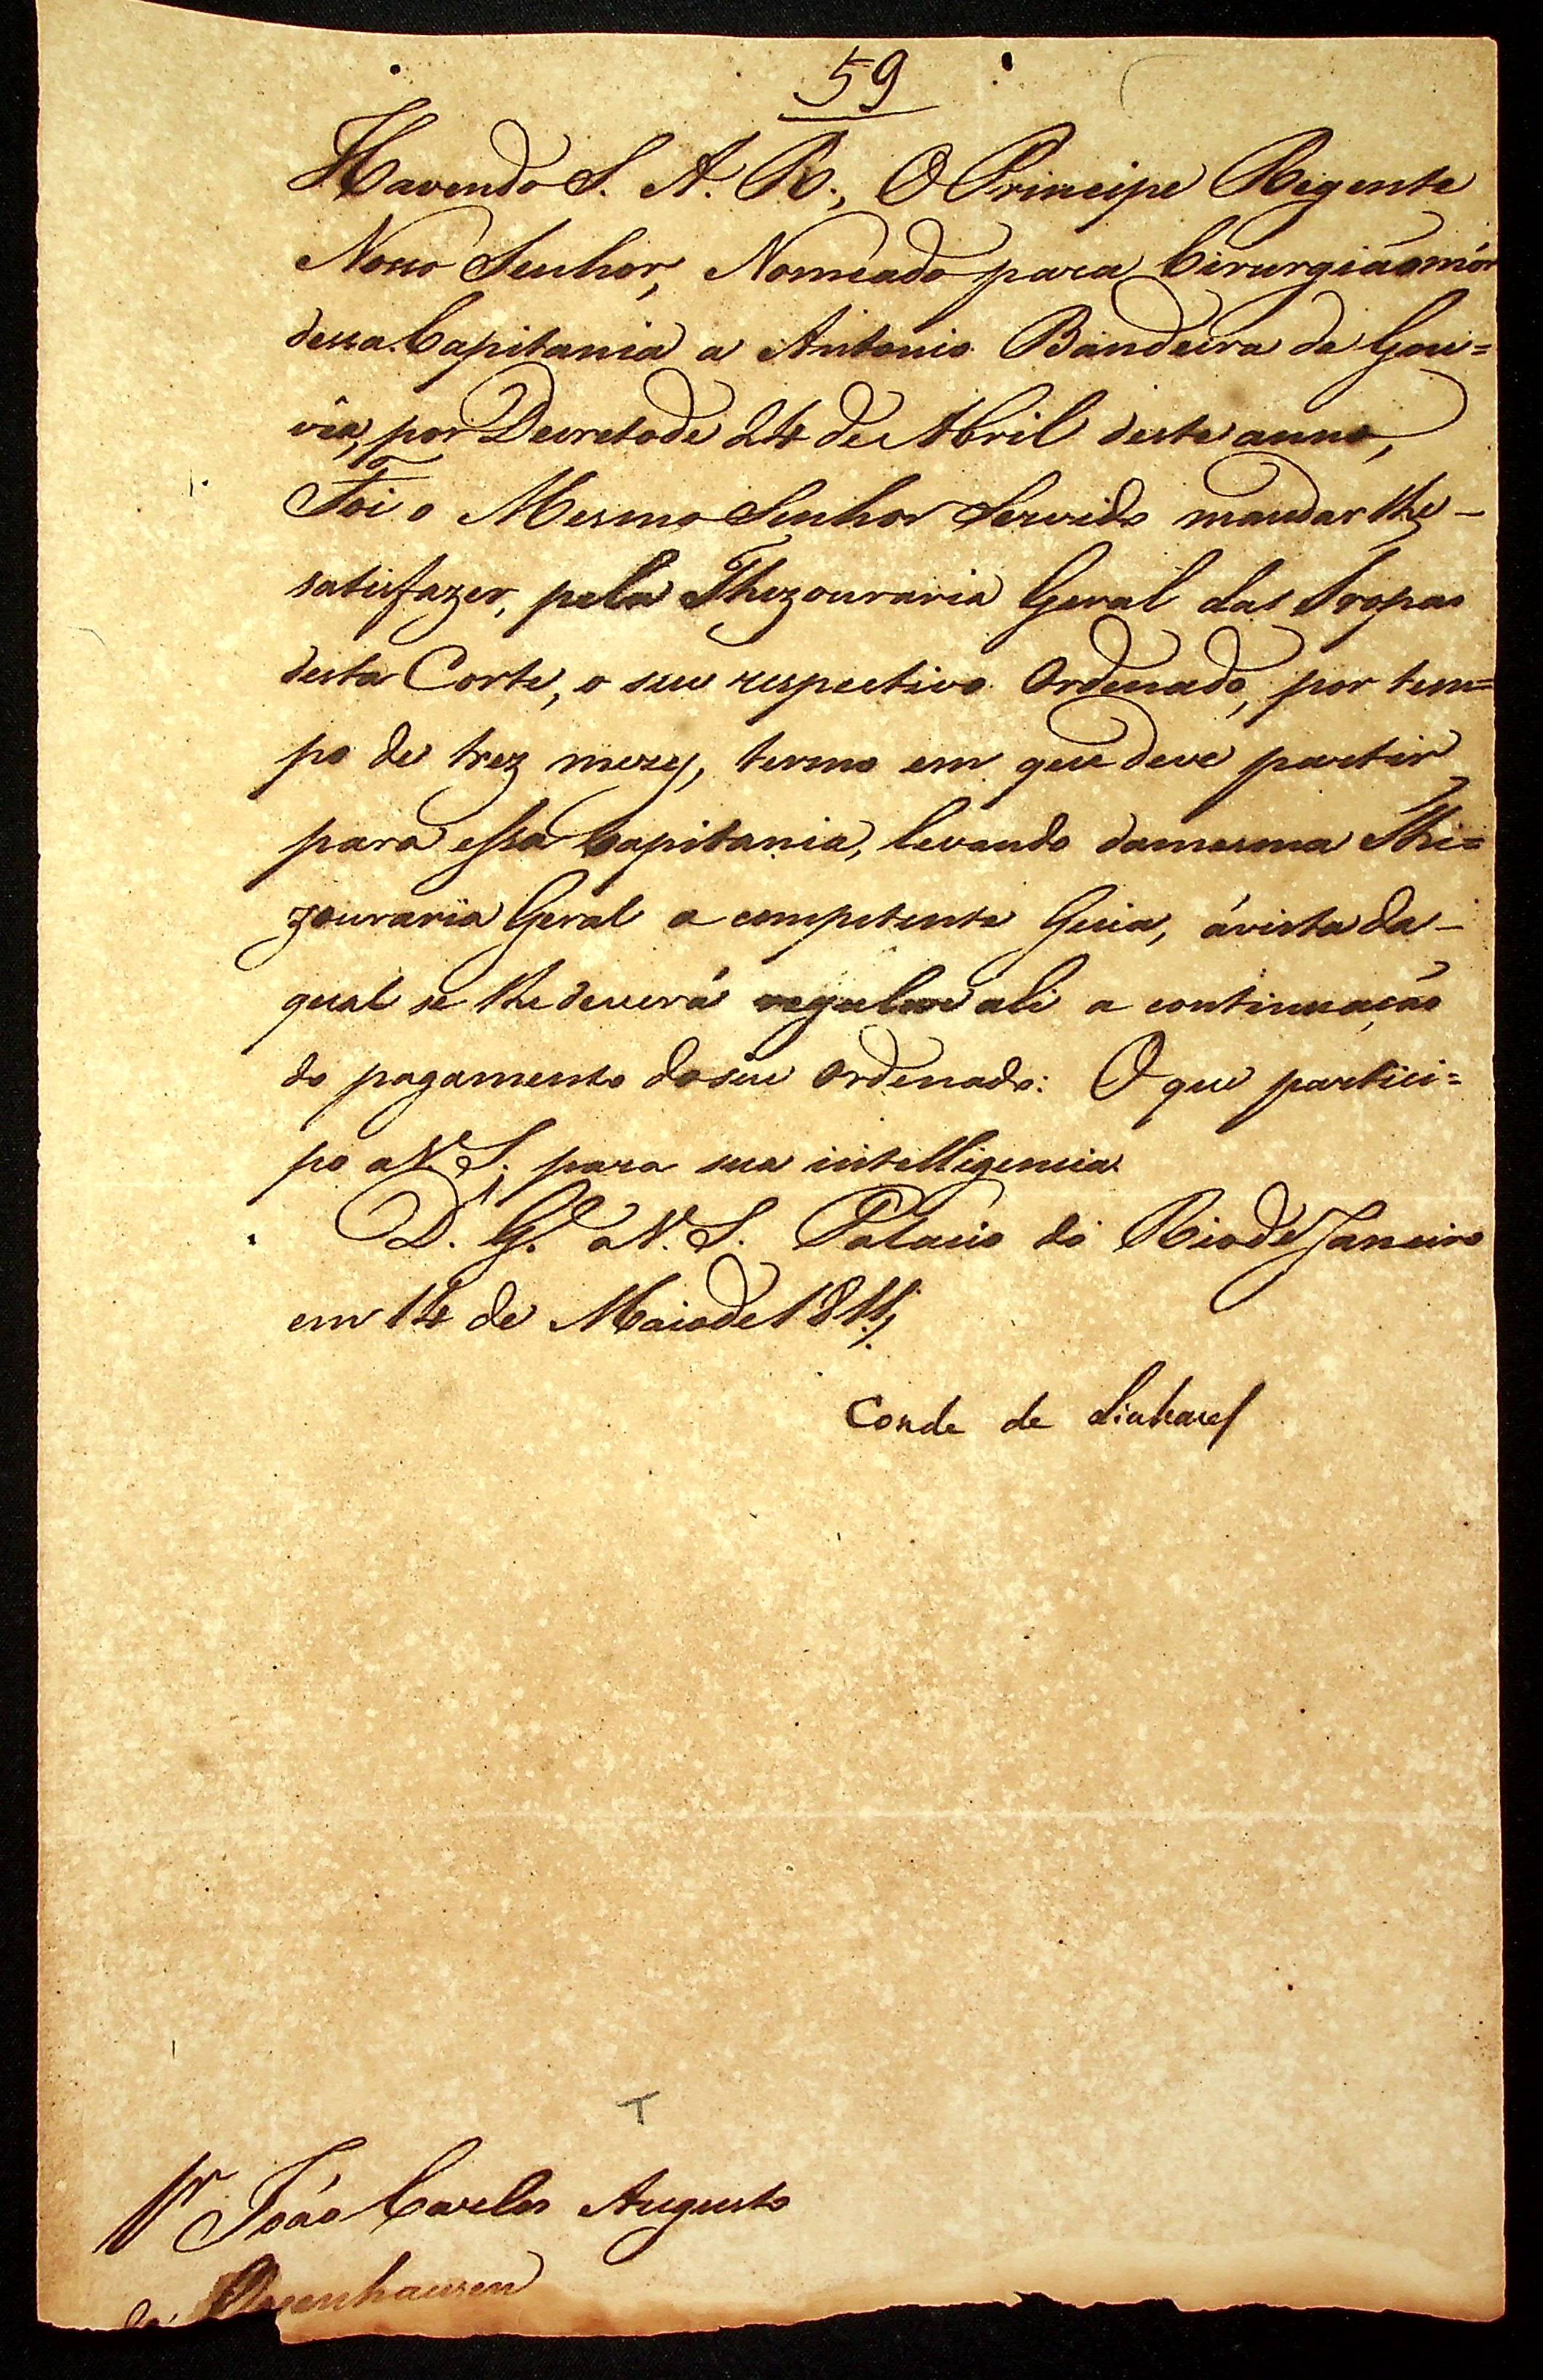 59
Havendo S. A. R., O Principe Regente
Nosso Senhor, Nomeado para Cirurgiáo mór
dessa Capitania a Antonio Bandeira de Gou=
vêa, por Decreto de 24 de Abril deste anno,
Foi o Mesmo Senhor Servido mandar lhe -
satisfazer, pela Thezouraria Geral das Tropas
desta Corte, o seu respectivo Ordenado, por tem=
po de trez mezes, termo em que deve partir
para essa Capitania, levando da mesma The=
zouraria Geral a competente Guia, á vista da -
qual se lhe deverá regular ali a continuaçáo
do pagamento do seu Ordenado: O que partici=
po a V. S. para sua intelligencia.
D. G. a V. S. Palacio do Rio de Janeiro
em 14 de Maio de 1811,
Conde de Linhares
T
Sr. João Carlos Augusto
Oeyenhausen